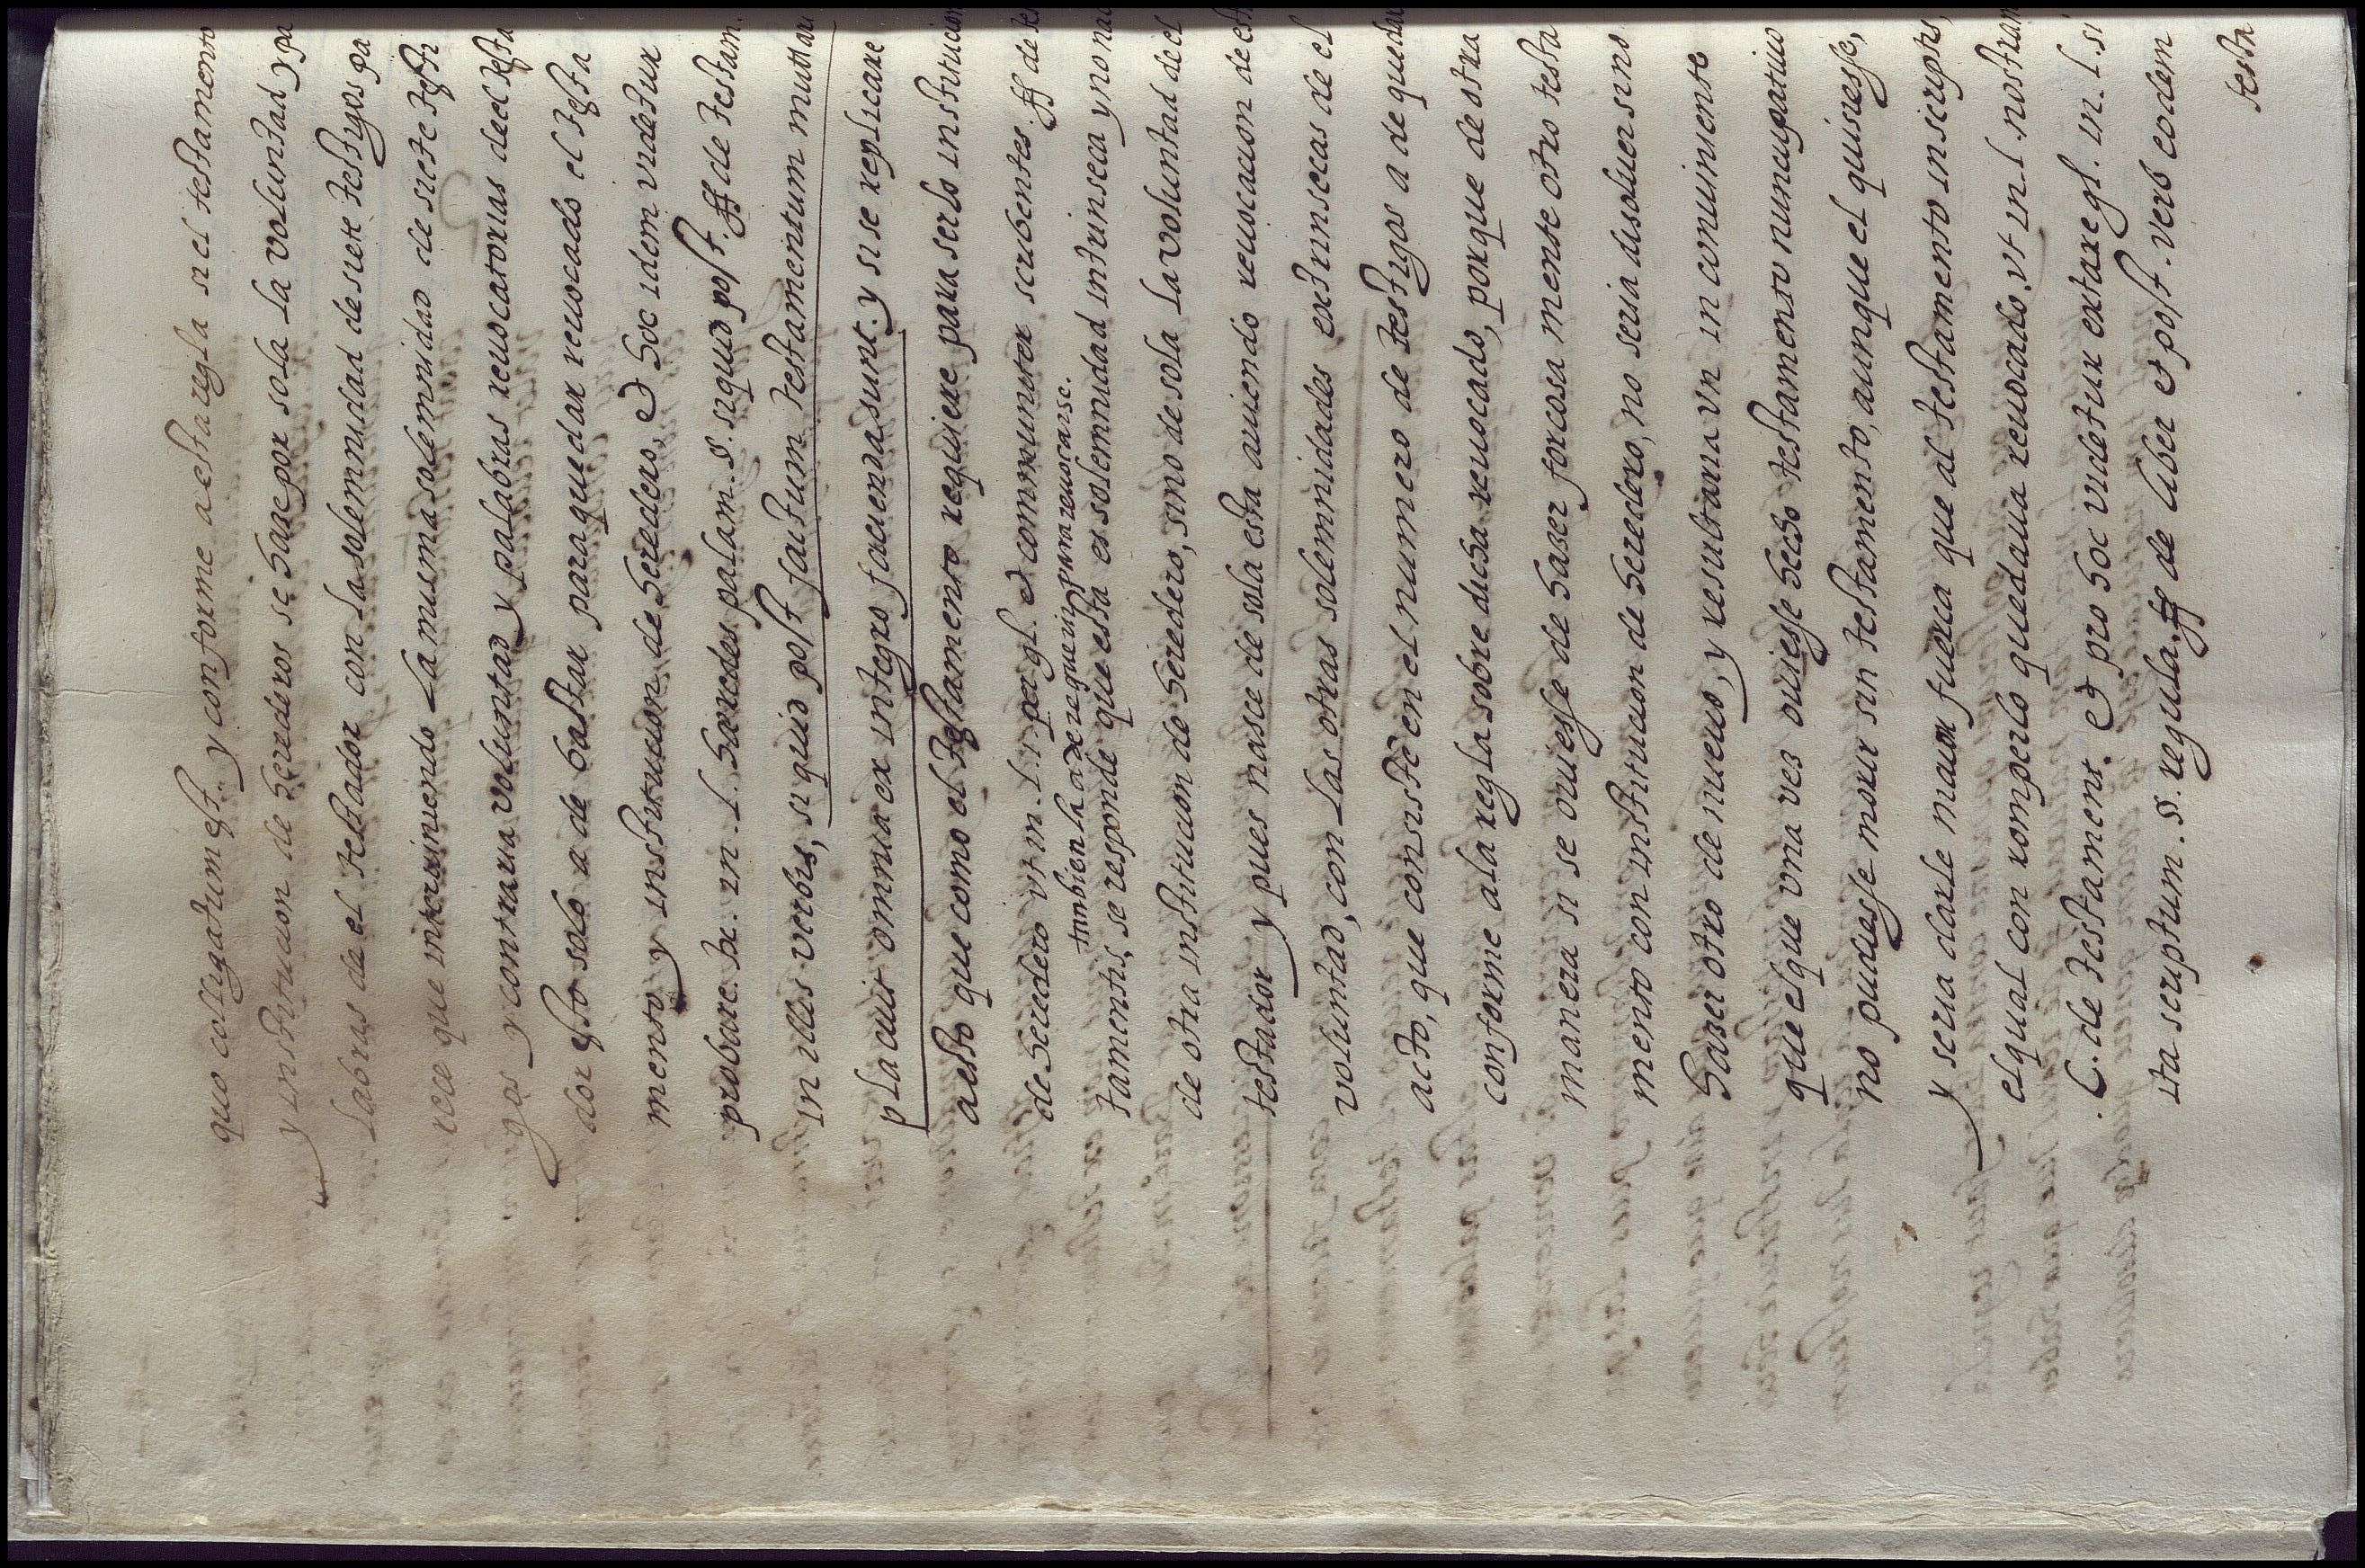 quo colligatum est. y conforme a esta regla si el testamento
y institucion de herederos se haze por sola la voluntad y pa
labras de el testador con la solemnidad de siete testigos pa
rece que interuiniendo la misma solemnidad de siete testi
gos y contraria voluntad y palabras reuocatorias de el testa
dor esto solo a de bastar para quedar reuocado el testa
mento y institucion de herederos, et hoc idem videtur
probare. tx. in. l. hæredes palam. §. si quid post. ff de testam.
in illis verbis, si quid post factum testamentum muttari
placuit omnia ex integro facienda sunt. y si se replicare
a esto que como el testamento requiere para serlo institucion
de heredero vt in. l. 1. per gl. et communiter scribentes. ff de tes
tambien la a de requerir para reuocarse.
tamentis, se responde que esta es solemnidad intrinseca y no nac
de otra institucion de herederos, sino de sola la voluntad de el
testador y pues nasce de sola esta auiendo reuocacion de est
voluntad, con las otras solemnidades extrinsecas de el
acto, que consiste en el numero de testigos a de quedar
conforme a la regla sobre dicha reuocado, porque de otra
manera si se ouiesse de hazer forcosa mente otro testa
mento con institucion de heredero, no seria disoluer sino
hazer otro de nueuo, y resultaria vn inconuiniente
que el que vna ves ouiesse hecho testamento nuncupatiuo
no pudiesse morir sin testamento, aunque el quisiesse,
y seria darle maior fuerca que al testamento inscriptis,
el qual con romperlo quedaua reuocado, vt in. l. nostram
.C. de testament. et pro hoc videtur extare gl. in. l. si
ita scriptum. §. regula. ff de liber et post. verb eodem
testa